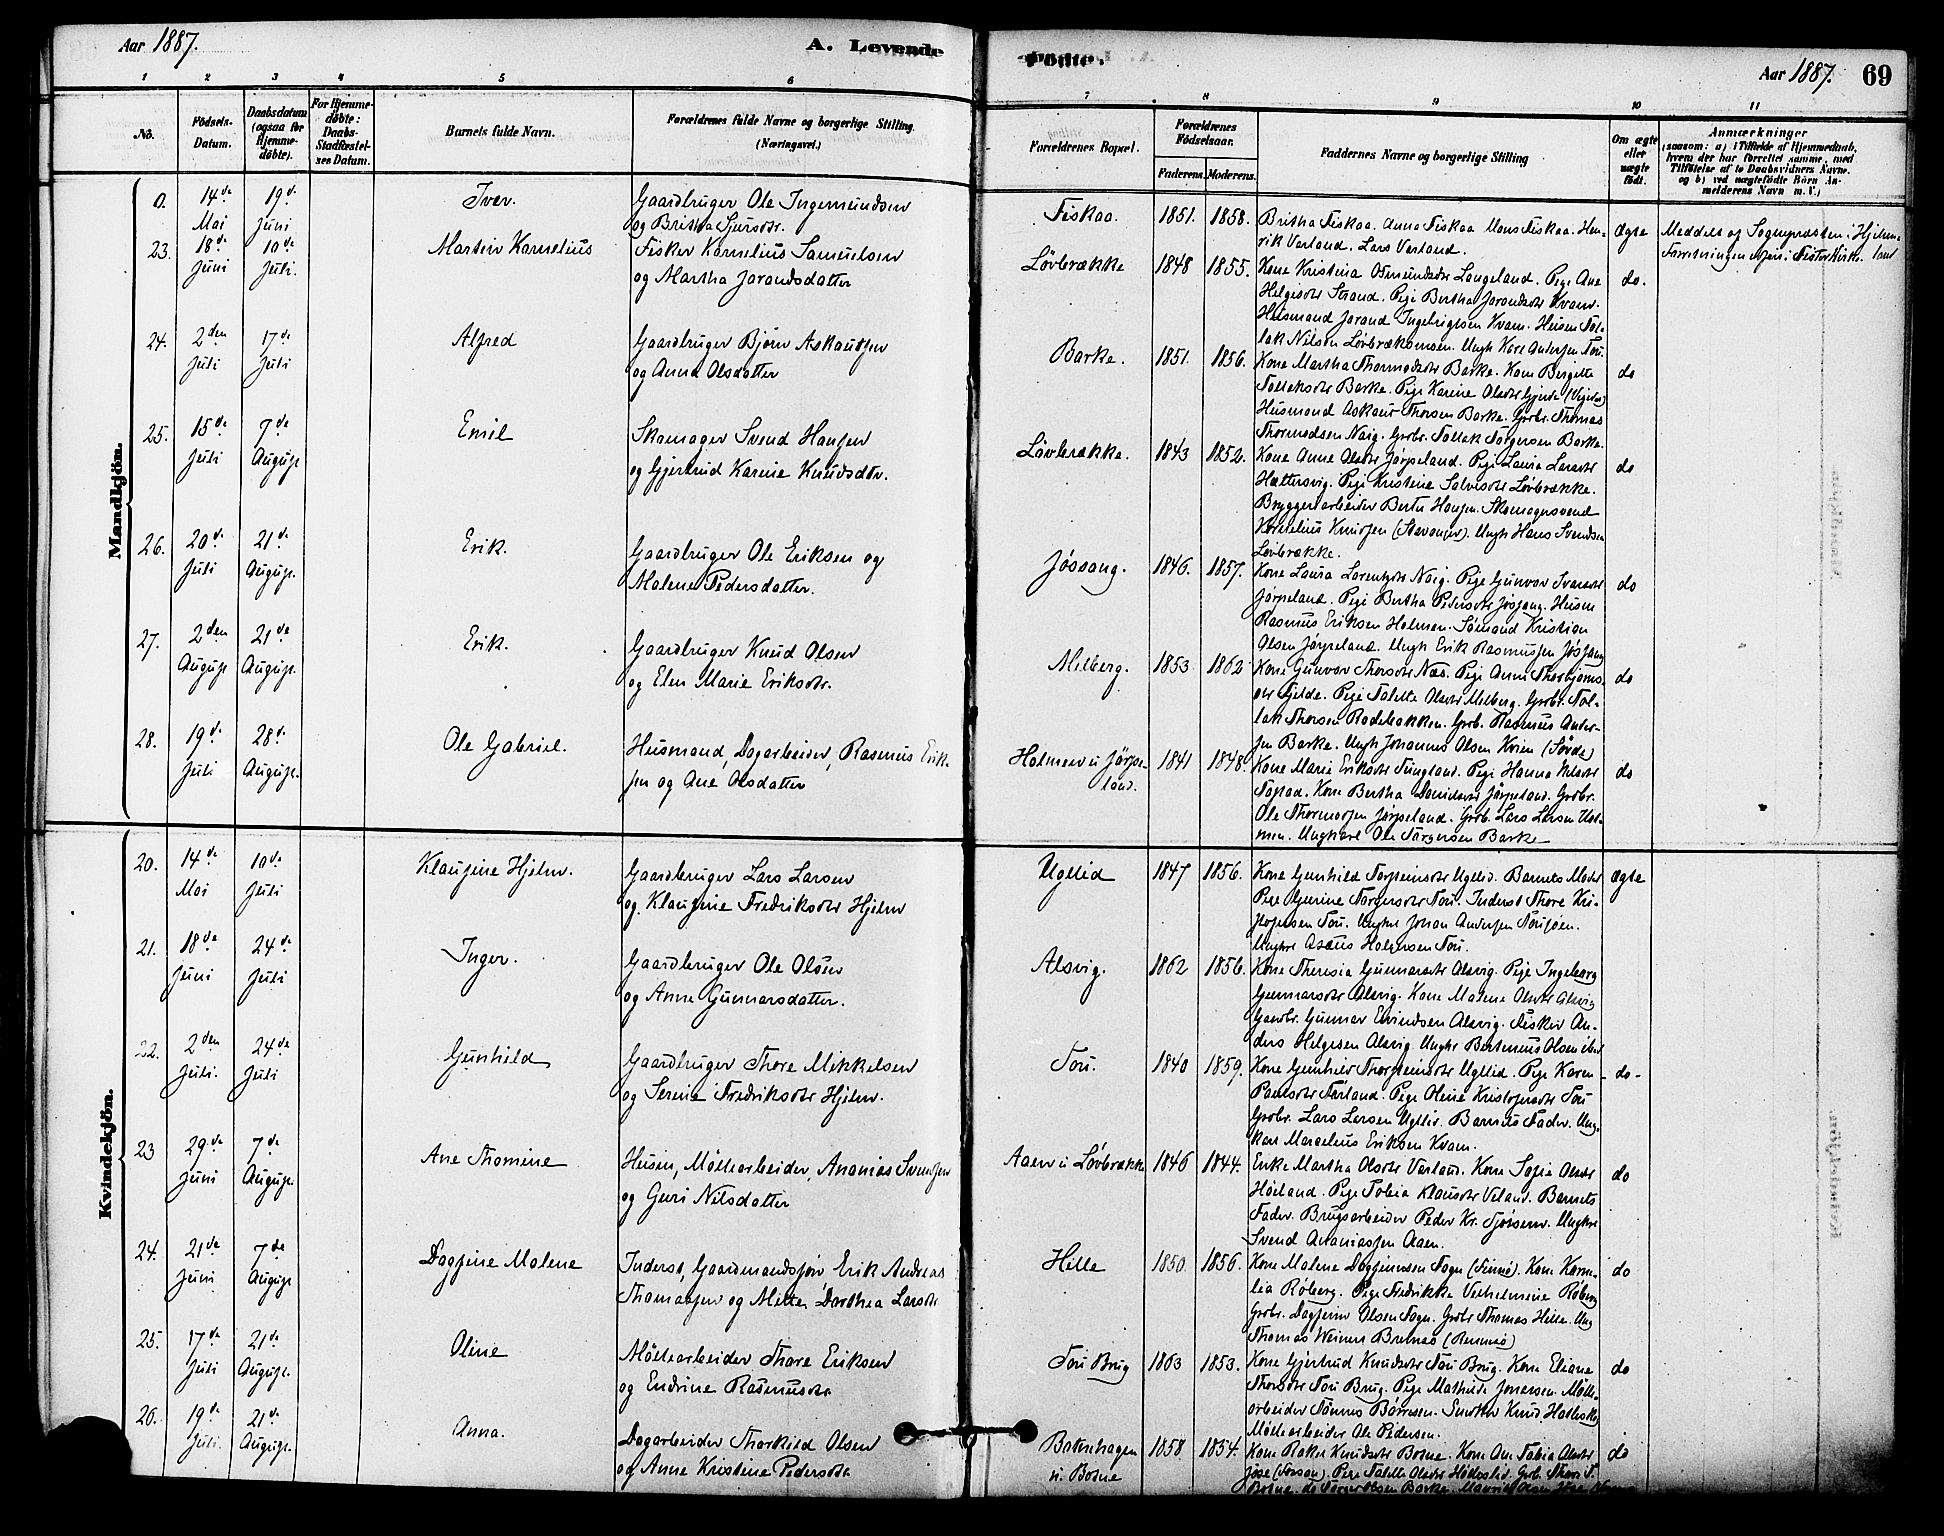 Aar 1887.
A. Levende
Fødte.
Aar 1887.
69
1 2 3 4 5 6 7 8 9 10 11
No.
Fødsels-Datum.
Daabsdatum (ogsaa for Hjemmedøbte).
For Hjemmedøbte: Daabs-Stadfæstelses Datum.
Barnets fulde Navn.
Forældrenes fulde Navne og borgerlige Stilling. (Næringsvei.)
Forældrenes Bopæl.
Forældrenes Fødselsaar.
Faderens. Moderens.
Faddernes Navne og borgerlige Stilling
Om ægte eller uægte født.
Anmærkninger (saasom: a) i Tilfælde af Hjemmedaab, hvem der har forrettet samme, med Tilføielse af to Daabsvidners Navne. og b) ved uægtefødte Børn Anmelderens Navn m. V.)
Mandkjön.
0. 14de Mai 19de Juni Iver. Gaardbruger Ole Ingemundsen
og Britha Sjursdtr. Fiskaa. 1851. 1858. Britha Fiskaa. Anna Fiskaa Mons Fiskaa. Hen-
rik Varland. Lars Varland. ægte Meddelt af Sognepræsten i Hjelme-
land
23. 18de Juni 10de Juli. Martin Kornelius Fisker Kornelius Samuelsen
og Martha Jorandsdatter Løvbrække 1848 1855. Kone Kristina Osmundsdtr Langeland. Pige Ane
Helgesdtr Strand. Pige Bertha Jorandsdtr Kvam.
Husmand Jorand Ingebrigtsen Kvam. Husm Tol-
lak Nilsen Løvbrækmoen. Ungk Kore Andersen Tou. do.
24. 2den Juli 17de Juli Alfred Gaardbruger Bjørn Askautsen
og Anna Olsdatter Barke. 1851. 1856. Kone Martha Thormodsdtr Barke. Kone Birgitte
Tollaksdtr Barke. Pige Karine Olsdtr
Husmand Askaut Thorsen Barke. Grbr. Thomas
Thormodsen Naig. Grbr. Tollak Torgersen Barke. do
25. 15de Juli 7de August. Emil Skomager Svend Hansen
og Gjertrud Karine Knudsdtr. Løvbrække. 1843 1852. Kone Anne Olsdtr Jørpeland. Pige Laura Larsdtr
Hættersvig. Pige Kristine Salvesdtr Løvbrække.
Bryggeriarbeider Berte Hansen. Skomagersvend
Kornelius Knudsen (Stavanger). Ungk Hans Svendsen
Løvbrække. do
26. 20de Juli 21de August. Erik. Gaardbruger Ole Eriksen og
Malene Pedersdatter. Jøssang. 1846. 1857. Kone Laura Larentzdtr Naig. Pige Gunvor Ivarsdtr
Jørpeland. Pige Bertha Pedersdtr Jøssang. Husm
Rasmus Eriksen Holmen. Sømand Kristian
Olsen Jørpeland. Ungk Erik Rasmussen Jøssang do
27. 2den August 21de August. Erik. Gaardbruger Knud Olsen
og Elen Marie Eriksdtr. Melberg. 1853 1862 Kone Gunvor Thorsdtr Næs. Pige Anna Thorbjørns-
dtr Fjelde. Pige Tolette Olsdtr Melberg. Grbr. Tol-
lak Thorsen Rodebakken. Grbr. Rasmus Ander-
sen Barke. Ungk Johannes Olsen Kvien (Førde) do
28. 19de Juli 28de August. Ole Gabriel. Husmand, Dagarbeider, Rasmus Erik-
sen og Ane Olsdatter Holmen u Jørpe-
land. 1841 1848. Kone Marie Eriksdtr Tungland. Pige Hanna Nilsdtr
Kone Bertha Danielsdtr Jørpeland. Grbr.
Ole Thormodsen Jørpeland. Grbr. Lars Larsen Hol-
men. Ungkarl Ole Torgersen Barke do
Kvindekjön.
20. 14de Mai 10de Juli Klausine Hjelm. Gaardbruger Lars Larsen
og Klausine Fredriksdtr Hjelm Uglied 1847 1856. Kone Gunhild Torsteinsdtr Uglid. Barnets Moder
Pige Gurine Torgersdtr Tou. Inderst Thore Kri-
stofersen Tou. Ungkr Johan Andersen Tousøen.
Ungkr Asaus Holgersen Tou. ægte
21. 18de Juni 24de Juli Inger. Gaardbruger Ole Olsen
og Anne Gunnarsdatter. Alsvig. 1862 1856. Kone Theresia Gunnarsdtr Alsvig. Pige Ingeborg
Gunnarsdtr Alsvig. Kone Malene Olsdtr Alsvig
Gaardbr. Gunnar Eivindsen Alsvig. Fisker An-
ders Helgesen Alsvig Ungkr Bertinius Olsen ibid
22. 2den Juli. 24de Juli Gunhild Gaardbruger Thore Mikkelsen
og Serine Fredriksdtr Hjelm. Tou. 1840 1859. Kone Gunhild Thorsteinsdtr Uglid. Pige Karen
Paulsdtr Førland. Pige Oline Kristofersdtr Tou
Grbr. Lars Larsen Uglid. Barnets Fader. Ung-
karl Marcelius Eriksen Kvam. do
23 29de Juni 7de August. Ane Thomine Husm, Møllearbeider, Ananias Svendsen
og Guri Nilsdatter Aaen u Løvbrække 1846 1844. Enke Martha Olsdtr Varland. Kone Sofie Olsdtr
Høiland. Pige Tobia Klausdtr Veland. Barnets
Fader. Brugsarbeider Peder Kr. Ungkr
Svend Ananiassen Aaen. do
24. 21de Juni 7de August Dagfine Malene Inderst, Gaardmandssøn Erik Andreas
Thomassen og Mette Dorthea Larsdtr Hille 1850. 1856. Kone Malene Dagfinnsen Sogn (Finnø). Kone Korne-
lia Røberg. Pige Fredrikke Vilhelmine Røberg
Grbr. Dagfinn Olsen Sogn. Grbr Thomas Hille. Ung
Thomas Weiners Brennes (Rennesø) do
25. 17de Juli 21de August. Oline Møllearbeider Thore Eriksen
og Endrine Rasmusdtr Tou Brug 1863 1853. Kone Gjertrud Knudsdtr Tou Brug. Kone Eliane
Thorsdtr Tou Brug. Pige Mathilde Jonassen. Mølle-
arbeider Tønnes Børresen. Smedkr Knud
Møllearbeider Ole Pedersen. do
26. 19de Juli. 21de August. Anna. Dagarbeider Thorkild Olsen
og Anne Kristine Pedersdtr Botnehagen
u. Botne 1858 1854. Kone Rakel Knudsdtr Botne. Kone Ane Tobia Olsdtr
Pige Tolette Olsdtr Grbr. Thore T.
Botne. do Torger Olsen Barke. do